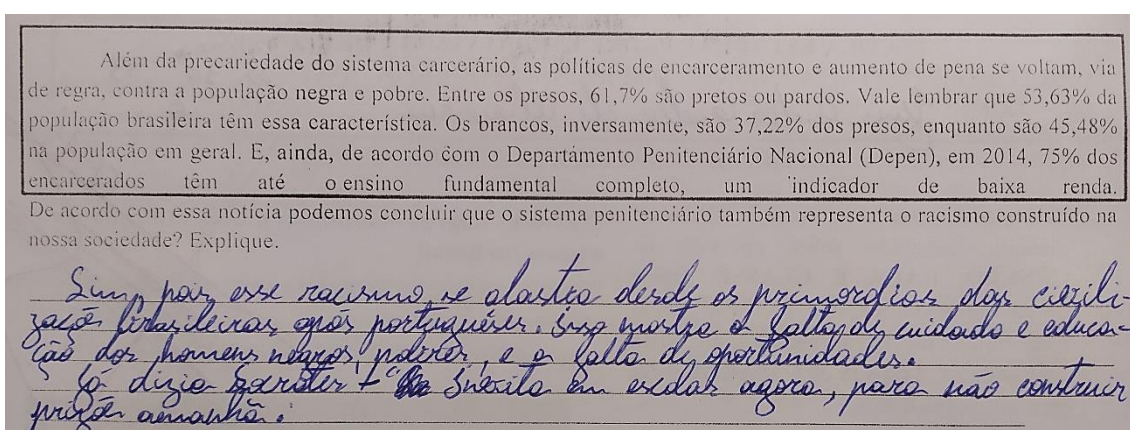 Além da precariedade do sistema carcerário, as políticas de encarceramento e aumento de pena se voltam, via
de regra, contra a população negra e pobre. Entre os presos, 61,7% são pretos ou pardos. Vale lembrar que 53,63% da
população brasileira têm essa característica. Os brancos, inversamente, são 37,22% dos presos, enquanto são 45,48%
na população em geral. E, ainda, de acordo com o Departamento Penitenciário Nacional (Depen), em 2014, 75% dos
encarcerados têm até o ensino fundamental completo, um indicador de baixa renda.
De acordo com essa notícia podemos concluir que o sistema penitenciário também representa o racismo construído na
nossa sociedade? Explique.
Sim, pois esse racismo se alastra desde os primordios das civili-
zaçoẽs brasileiras após portugueses. Isso mostra a falta de cuidado e educa-
ção dos homens negros, pobres, e a falta de oportunidades.
Já dizia " em escolas agora, para não construir
prisões amanhã.